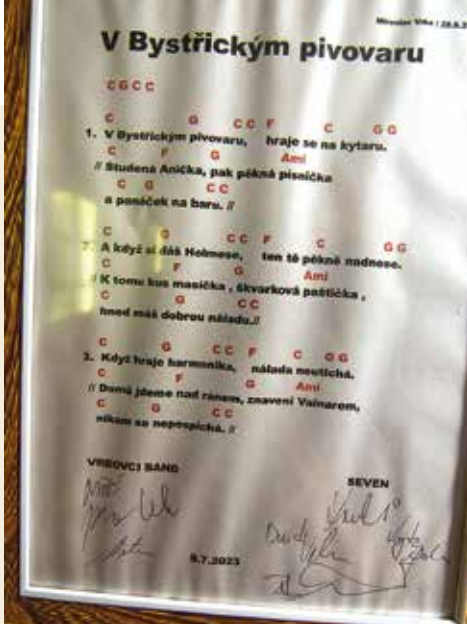 V Bystřickým pivovaru
C G C C
C G C C F C G G
1. V Bystřickým pivovaru, hraje se na kytaru.
C F G Ami
// Studená Anička, pak pěkná písnička
C G C C
a panáček na baru. //
C G C C F C G G
A když si dáš Holmese, ten tě pěkně nadnese.
C F G Ami
// K tomu kus masíčka , škvarková paštička ,
C G C C
hned máš dobrou náladu.//
C G C C F C G G
3. Když hraje harmonika, nálada neutichá.
C F G Ami
// Domů jdeme nad ránem, znaveni Vainarem,
C G C C
nikam se nepospíchá. //
VRBOVCI BAND
SEVEN
8.7.2023